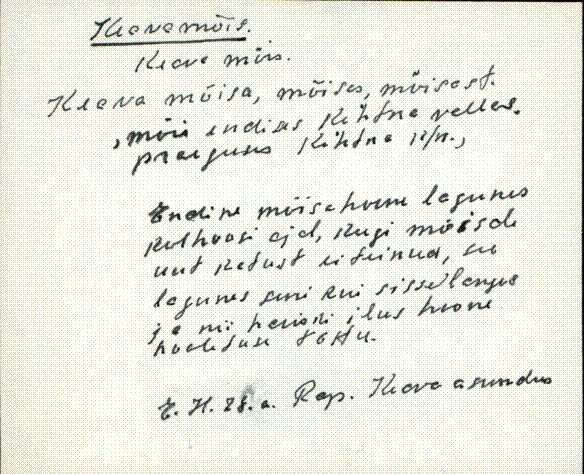 Keava mõis.
Keava mõis.
Keava mõisa, mõisas, mõisast.
, mõis endises Kehtna vallas.
praeguses Kehtna k/n.,
Endine mõisahoone lagunes
kolhoosi ajal, keegi mõisale
uut katust ei teinud, see
lagunes kuni sisse langes
ja nii hävis ilus hoone
hooletuse tõttu.
E. H. 78. a. Rap. Keava asundus